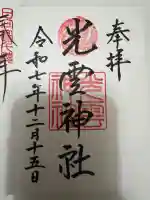 奉拝
光雲神社
令和七年十二月十五日